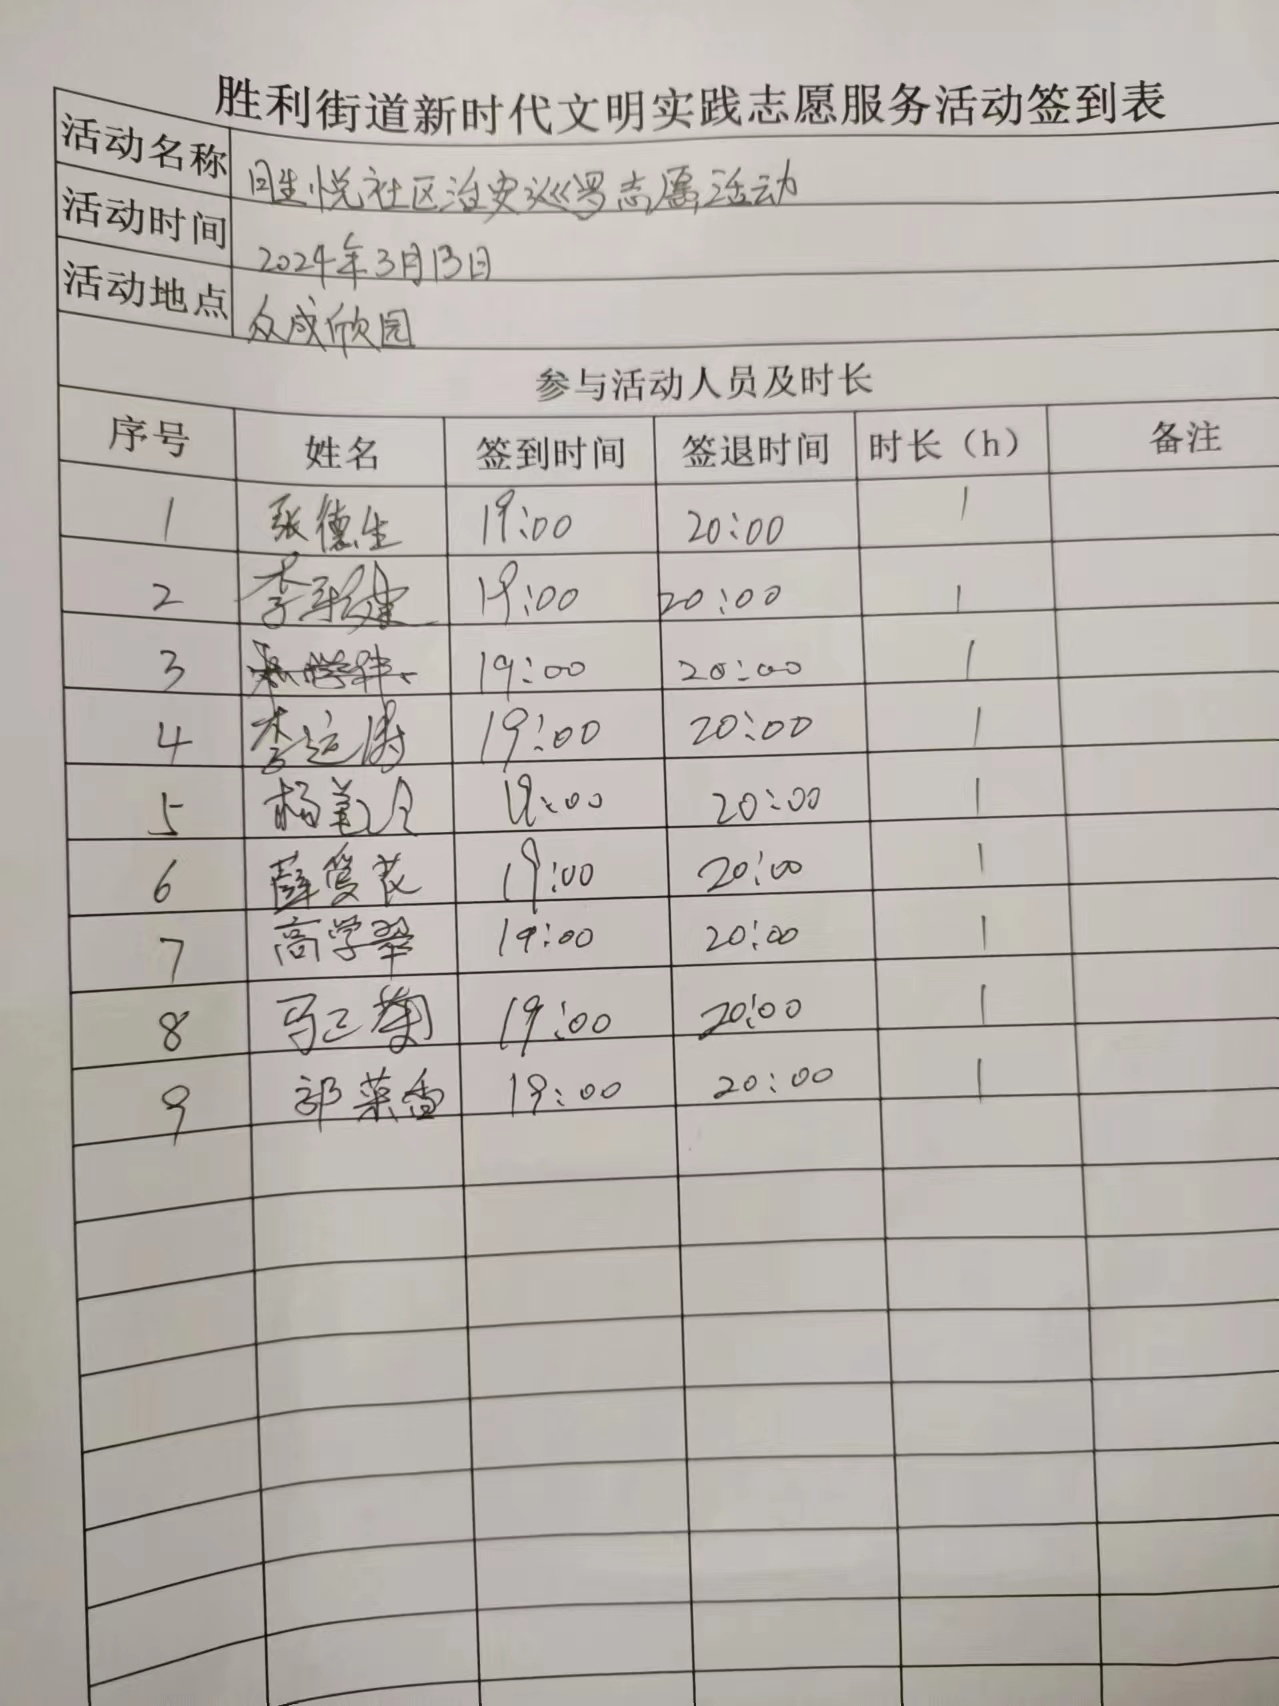 胜利街道新时代文明实践志愿服务活动签到表
活动名称 日生悦社区治安巡罗志愿活动
活动时间 2024年3月13日
活动地点 众成欣园
参与活动人员及时长
序号 姓名 签到时间 签退时间 时长（h） 备注
1 张德生 19:00 20:00 1
2 19:00 20:00 1
3 19:00 20:00 1
4 李运涛 19:00 20:00 1
5 19:00 20:00 1
6 19:00 20:00 1
7 高学翠 19:00 20:00 1
8 19:00 20:00 1
9 19:00 20:00 1